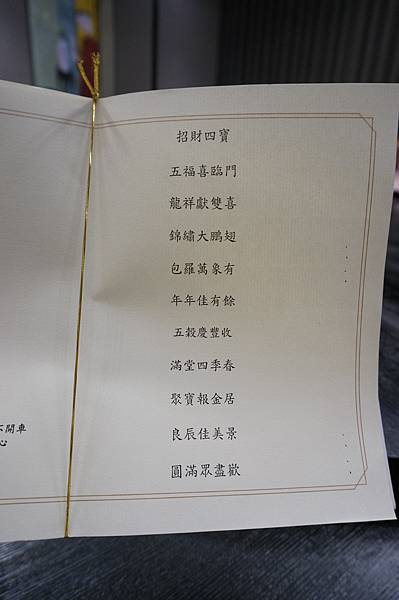 招財四寶
五福喜臨門
龍祥獻雙喜
錦繡大鵬翅
包羅萬象有
年年佳有餘
五穀慶豐收
滿堂四季春
聚寶報金居
良辰佳美景
圓滿眾盡歡
不開車
心